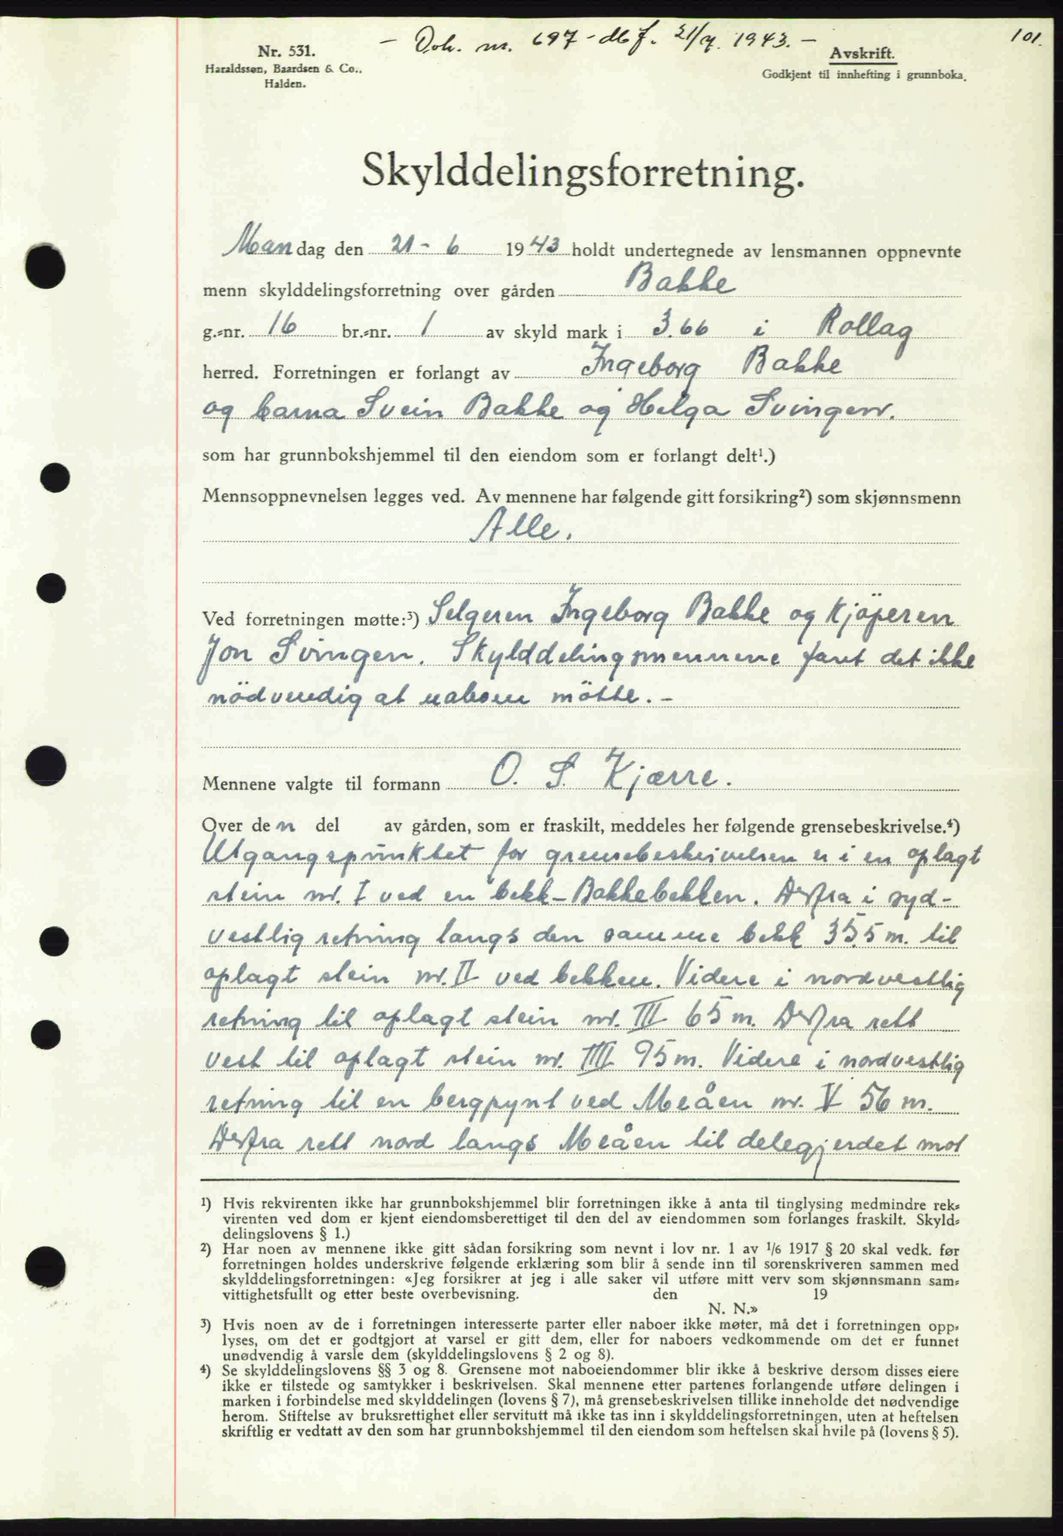 101.
- Dok. nr. 697 - Mf. 21/7. 1943. -
Nr. 531.
Haraldssøn, Baardsen & Co..
Halden.
Avskrift.
Godkjent til innhefting i grunnboka.
Skylddelingsforretning.
Mandag den 21 - 6 1943 holdt undertegnede av lensmannen oppnevnte
menn skylddelingsforretning over gården Bakke
g.-nr. 16 br.-nr. 1 av skyld mark i 3.66 i Rollag
herred. Forretningen er forlangt av Ingeborg Bakke
og barna Svein Bakke og Helga Svingen.
som har grunnbokshjemmel til den eiendom som er forlangt delt¹.)
Mennsoppnevnelsen legges ved. Av mennene har følgende gitt forsikring²) som skjønnsmenn
Alle.
Ved forretningen møtte:³) Selgeren Ingeborg Bakke og kjöperen
Jon Svingen. Skylddelingsmennene fant det ikke
nödvendig at naboer mötte. -
Mennene valgte til formann O. S. Kjærre.
Over den del av gården, som er fraskilt, meddeles her følgende grensebeskrivelse.⁴)
Utgangspunktet for grensebeskrivelsen er i en oplagt
stein nr. I ved en bekk - Bakkebekken. Derfra i syd-
vestlig retning langs den samme bekk 35,5 m. til
oplagt stein nr. II ved bekken. Videre i nordvestlig
retning til oplagt stein nr. III 65 m. Derfra rett
vest til oplagt stein nr. IIII 95 m. Videre i nordvestlig
retning til en bergpynt ved Meåen nr. V 56 m.
Derfra rett nord langs Meåen til delegjerdet mot
¹) Hvis rekvirenten ikke har grunnbokshjemmel blir forretningen ikke å anta til tinglysing medmindre rek-
virenten ved dom er kjent eiendomsberettiget til den del av eiendommen som forlanges fraskilt. Skyld-
delingslovens § 1.)
²) Har noen av mennene ikke gitt sådan forsikring som nevnt i lov nr. 1 av 1/6 1917 § 20 skal vedk. før
forretningen holdes underskrive følgende erklæring som blir å sende inn til sorenskriveren sammen med
skylddelingsforretningen: «Jeg forsikrer at jeg i alle saker vil utføre mitt verv som skjønnsmann sam-
vittighetsfullt og etter beste overbevisning. den 19
N. N.»
³) Hvis noen av de i forretningen interesserte parter eller naboer ikke møter, må det i forretningen opp-
lyses, om det er godtgjort at varsel er gitt dem, eller for naboers vedkommende om det er funnet
unødvendig å varsle dem (skylddelingslovens § 2 og 8).
⁴) Se skylddelingslovens §§ 3 og 8. Grensene mot naboeiendommer blir ikke å beskrive dersom disses eiere
ikke er tilstede og samtykker i beskrivelsen. Skal mennene etter partenes forlangende utføre delingen i
marken i forbindelse med skylddelingen (lovens § 7), må grensebeskrivelsen tillike inneholde det nødvendige
herom. Stiftelse av bruksrettighet eller servitutt må ikke tas inn i skylddelingsforretningen, uten at heftelsen
skriftlig er vedtatt av den som har grunnbokshjemmel til den eiendom som heftelsen skal hvile på (lovens § 5).